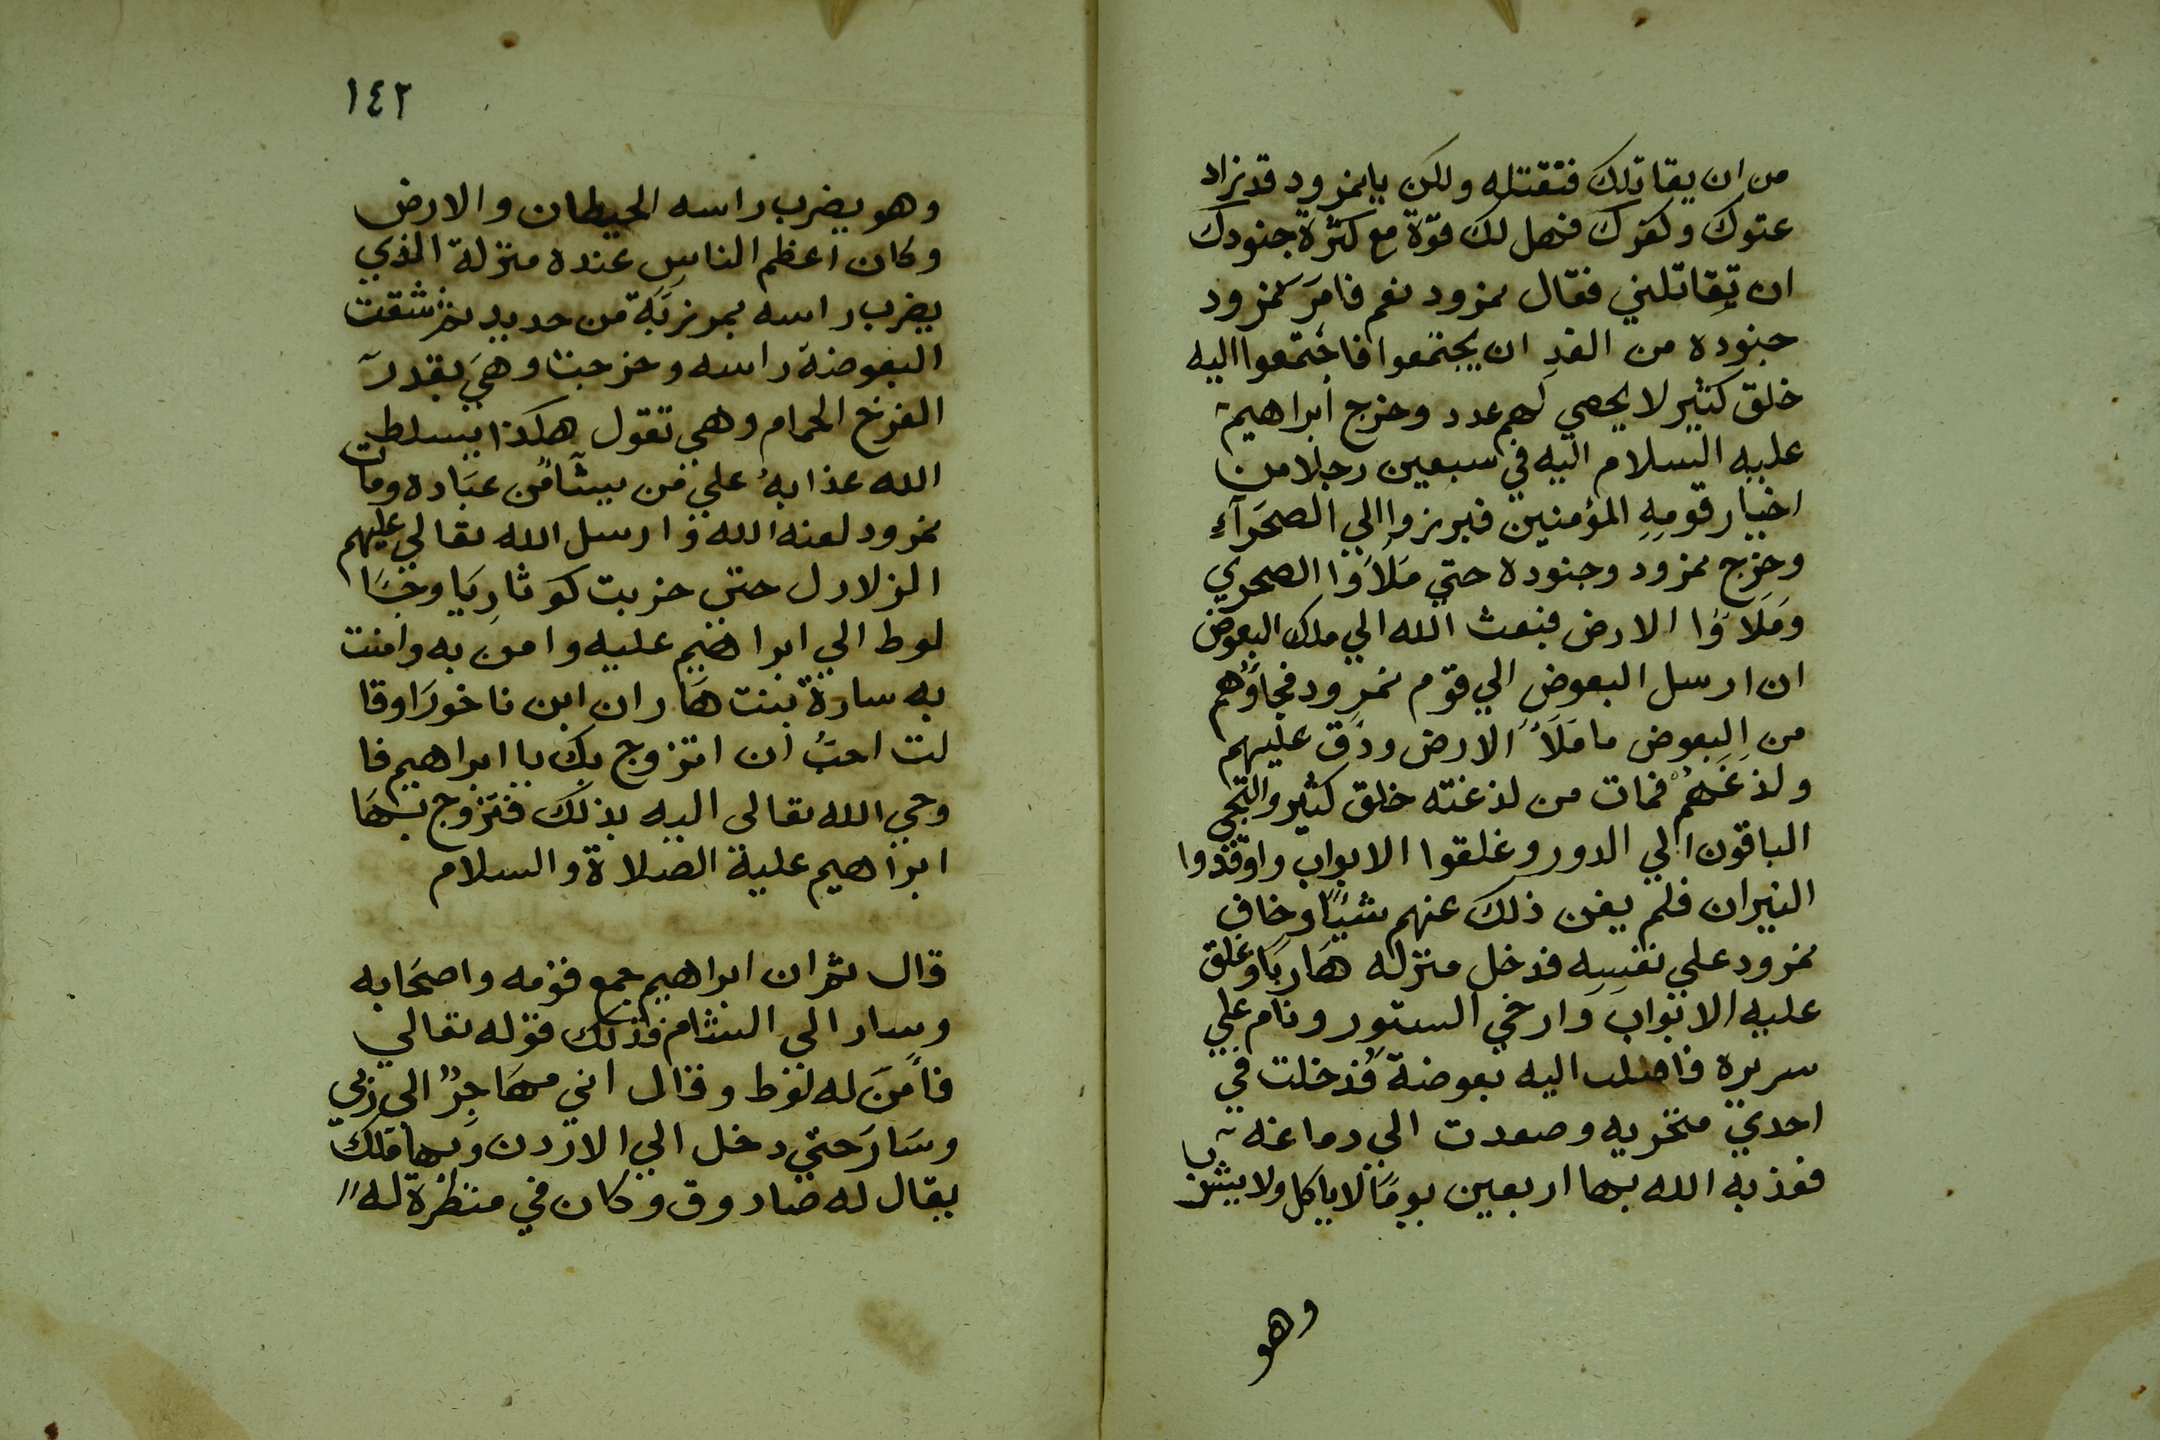 من ان يقاتلك فتقتله ولكن يا نمرود قد زاد
عتوك وكفرك فهل لك قوّة مع كثرة جنودك
ان تقاتلني فقال نمرود نعم فامرَ نمرود
جنوده من الغدِ ان يجتمعوا فاجتمعوا اليه
خلق كثير لا يحصي لهم عدد وخرج ابراهيم
عليه السلام اليه في سبعين رجلا من
اخيار قومِهِ المؤمنين فبرزوا الي الصحَرآءِ
وخرج نمرود وجنوده حتي مَلَاوُا الصحري
ومَلَاوُا الارض فبعث الله الي ملك البعوض
ان ارسل البعوض الي قوم نمرود فجاوَهُم
من البعوض ما مَلَاَ الارض ودق عليهم
ولذغَهُمْ فمات من لذغته خلق كثير والتجي
الباقون الي الدور وغلقوا الابواب واوقدوا
النيران فلم يغن ذلك عنهم شيئًا وخاف
نمرود علي نفسِهِ فدخل منزله هَاربًا وغلق
عليه الابوابَ وَارخي الستور ونام علي
سريره فاقبلت اليه بعوضة فدخلت في
احدي منخريه وصعدت الي دماغه
فعذبه الله بها اربعين يومًا لا ياكل ولا يشرب
وهو
١٤٢
وهو يضرب راسه الحيطان والارض
وكان اعظم الناسِ عنده منزلة الذي
يضرب راسه بمرزبَة من حديد ثم شقت
البعوضة راسه وخرجت وهيَ بقدر
الفرخ الحمام وهي تقول هكذا يسلط
الله عذابهُ علي من يشآ من عبَاده ومات
نمرود لعنه الله وارسل الله تعالي عليهم
الزلازل حتي خربت كوثاريَا وجَا
لوط الي ابراهيم عليه وامن به وامنت
به سارة بنت هَاران ابن ناخورَا وقا
لت احبُ ان اتزوج بك يا ابراهيم فا
وحي الله تعالى اليه بذلك فتزوج بهَا
ابراهيم علية الصلاة والسلام
قال ثم ان ابراهيم جمع قومه واصحَابه
وسار الي الشام فذلك قوله تعالي
فأمنَ له لوط وقال اني مهَاجِرٌ الى ربي
وسَارَ حتي دخل الي الاردن وَبها مَلك
يقال له صادوق وكان في منظرة له